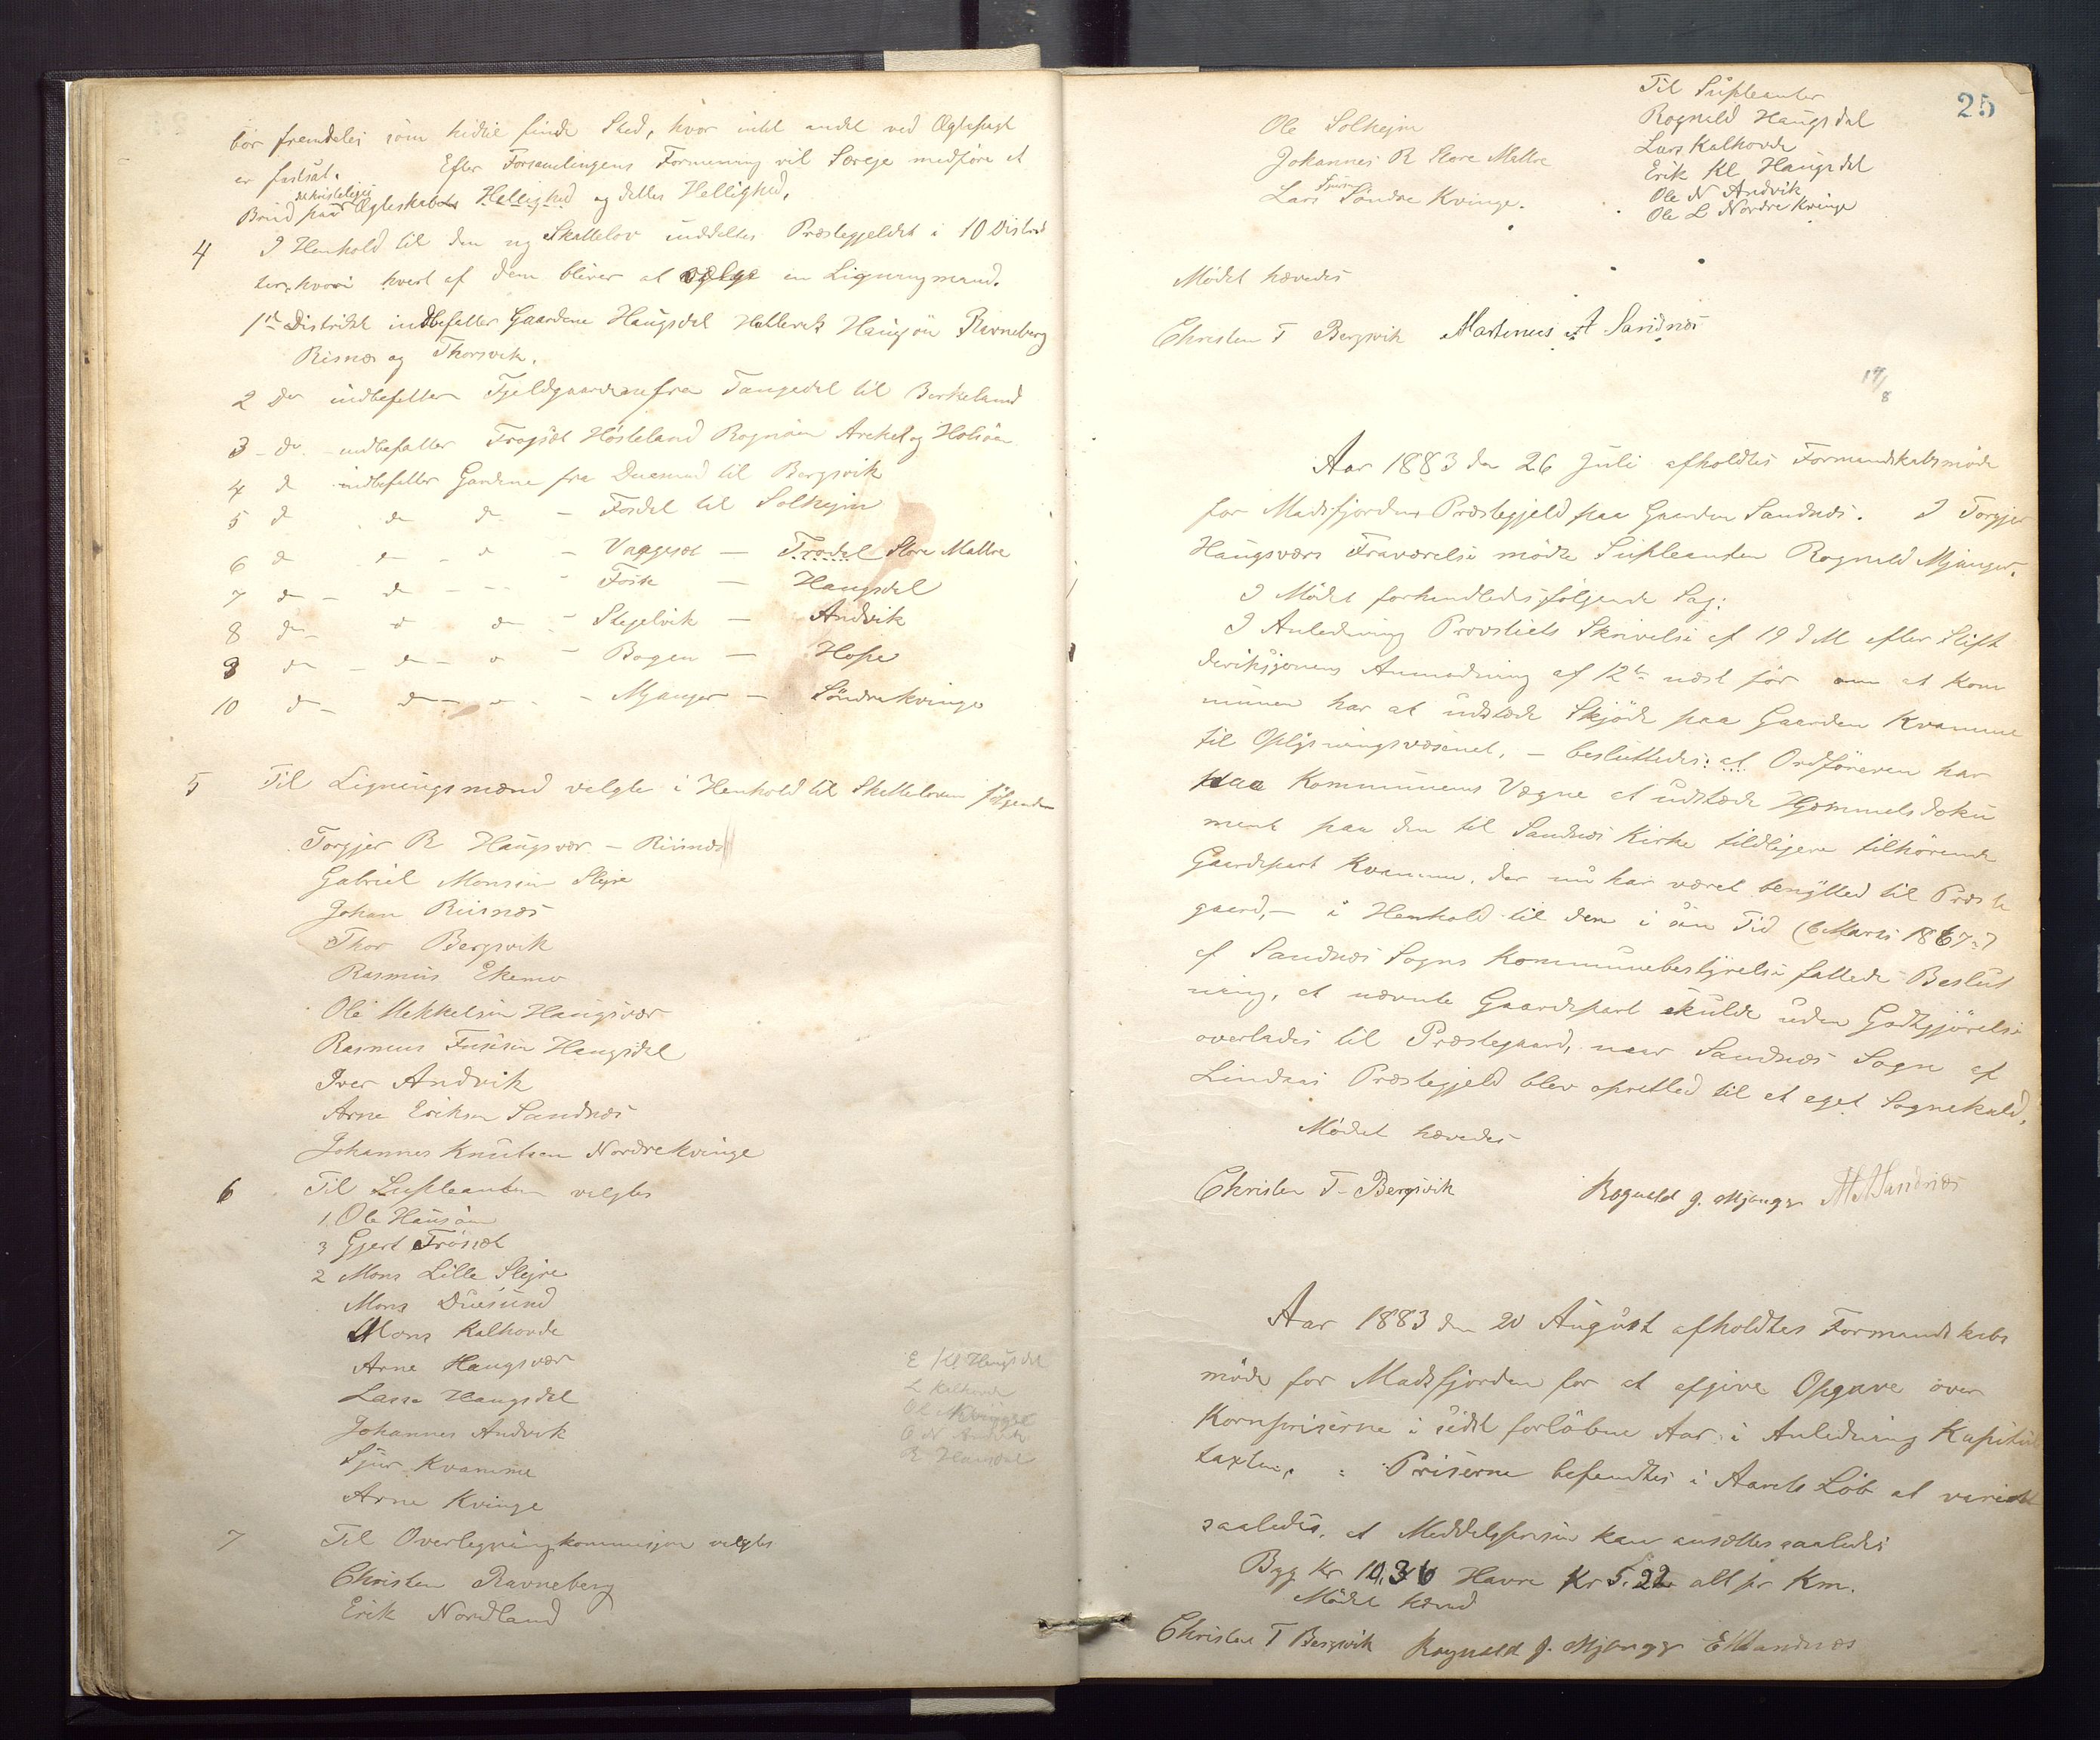 bør fremdeles som hidtil finde Sted, hvor intet andet ved Ægtepagt
er fastsat. Efter Forsamlingens Formening vil Særeje medføre et
Brud paa det kristelige Ægteskabets Hellighed og dettes Hellighed.
4 I Henhold til den ny Skattelov inddeltes Præstegjeldet i 10 Distrik
ter, hvori hvert af dem bliver at vælge en Ligningsmand.
1ste Distrikt indbefatter Gaardene Haugsdal Hatlevik Haugsøn Ravneberg
Risnæs og Thorsvik.
2 do indbefatter Fjeldgaardene fra Tangedal til Birkeland
3 - do - indbefatter Frøyset Hosteland Rognøen Areklet og Holsøen
4 d indbefatter Gardene fra Duesund til Bergsvik
5 d do do - Fosdal til Solhejm
6 d d - d - Vaggeset - Trodal Store Matre
7 d - d - - - Fosk - Haugsdal
8 do d do - Stegelvik - Andvik
9 do - d - d - Bogen - Hope
10 d - d - d - - Mjanger - Söndre Kvinge
5 Til Ligningsmænd valgte i Henhold til Skatteloven følgende
Torgjer R Haugsvær - Riisnæs
Gabriel Monsen Slejre
Johan Riisnæs
Thor Bergsvik
Rasmus Ekemo
Ole Mikkelsen Haugsvær
Rasmus Haugsdal
Iver Andvik
Arne Eriksen Sandnæs
Johannes Knutsen Nordre Kvinge
6 Til Supleanter valgtes
1 Ole Haugsøen
3 Gjert Frøiset
2 Mons Lille Slejre
Mons Duesund
Mons Kalhovde
Arne Haugsvær
Lasse Haugsdal
Johannes Andvik
Sjur Kvamme
Arne Kvinge
E Kl Haugsdal
L Kalhovde
Ol Kvinge
O N Andvik
R Haugsdal
7 Til Overlegningkommisjon valgtes
Christen Ravneberg
Erik Nordland
25
Ole Solhejm
Johannes R Store Matre
Lars Sjursen Söndre Kvinge.
Til Supleanter
Rognald Haugsdal
Lars Kalhovde
Erik Kl Haugsdal
Ole N Andvik
Ole L Nordre Kvinge
Mødet hævedes
Christen T Bergsvik Martinus A Sandnæs
17/8
Aar 1883 den 26 Juli afholdtes Formandskabsmøde
for Masfjorden Præstegjeld paa Gaarden Sandnæs. I Torgjer
Haugsværs Fraværelse mødte Supleanten Rognald Mjanger.
I Mødet forhandledes følgende Sag:
I Anledning Provstiets Skrivelse af 19 d M efter Stift
direksjonens Anmodning af 12te næst før om at Kom
munen har at udstede Skjøde paa Gaarden Kvamme
til Oplysningsvæsenet, - besluttedes: at Ordføreren har
paa Kommunens Vegne at udstede Hjemmelsdoku
ment paa den til Sandnæs Kirke tildligere tilhørende
Gaardpart Kvamme, der nu har været benyttet til Præste
gaard, - i Henhold til den i sin Tid (6 Marts 1867?)
af Sandnæs Sogns Kommunebestyrelse fattede Beslut
ning, at nævnte Gaardpart skulde uden Godtgjørelse
overlades til Præstegaard, naar Sandnæs Sogn af
Lindaas Præstegjeld blev oprettet til et eget Sognekald.
Mødet hævedes
Christen T. Bergsvik Rognald J. Mjanger Sandnæs
Aar 1883 den 20 August afholdtes Formandskabs
møde for Masfjorden for at afgive Opgave over
Kornpriserne i sidst forløbne Aar i Anledning Kapitel
taxten. Priserne befandtes i Aarets Løb at variere
saaledes, at Middelprisen kan ansættes saaledes
Byg Kr 10,36 Havre Kr 5.22 alt pr Km.
Mødet hævet
Christen T Bergsvik Rognald J. Mjanger Sandnæs